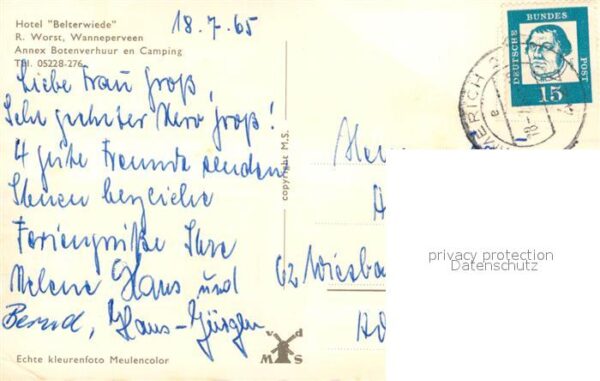 Hotel "Belterwiede"
R. Worst, Wanneperveen
Annex Botenverhuur en Camping
Tel. 05228-276
18.7.65
Liebe Frau Groß,
Sehr geehrter Herr Groß!
4 gute Freunde senden
Ihnen herzliche
Feriengrüße Ihre
Melene Hans und
Bernd, Hans-Jürgen
Echte kleurenfoto Meulencolor
copyright M.S.
v d
M S
62 Wiesba
DEUTSCHE BUNDES POST
15
MERICH
privacy protection
Datenschutz